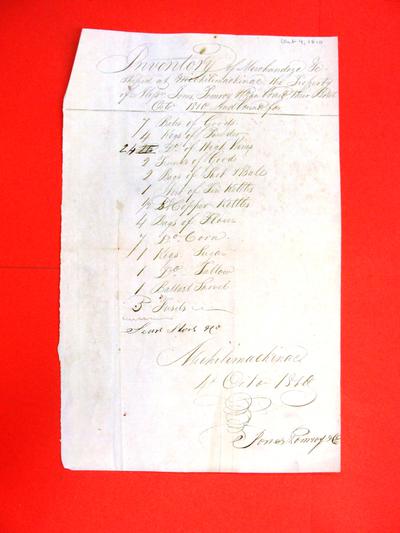 Oct 4, 1810
Inventory of Merchandize &c
Shipped at Michilimackinac the Property
of Mess. Jones, Pomroy
Octo 1810 And bound for
7 Bales of Goods
4 Kegs of Powder
24 Do of High Wines
2 Trunks of Goods
2 Bags of Shot & Balls
1 Nest of Tin Kettles
Copper Kettles
4 Bags of Flour
7 Do Corn
1 Kegs Sugar
1 Do Tallow
1 Ballast Parcel
3 Fusils
Stores &c
Michilimackinac
4 Octo 1810
Jones Pomroy & Co